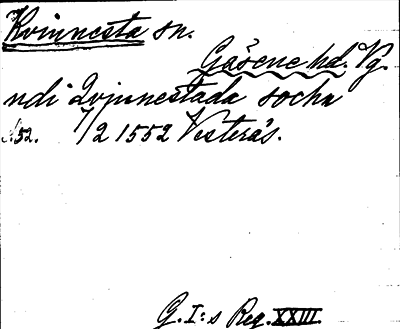 Kvinnesta sn.
Gäsene hd. Vg.
ndi Qvinnestada sochn
N:52. 7/2 1552 Vesterås.
G. I:s Reg. XXIII.